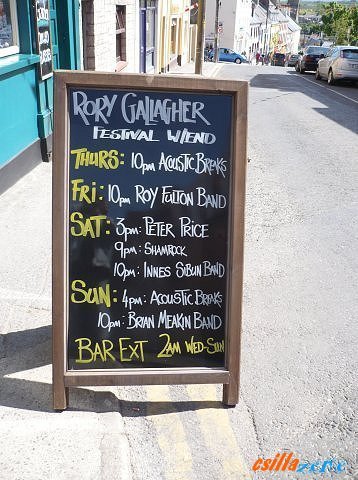 RORY GALLAGHER
FESTIVAL W/END
THURS: 10PM ACOUSTIC BREAKS
FRI: 10PM ROY FULTON BAND
SAT: 3PM: PETER PRICE
9PM: SHAMROCK
10PM: INNES SIBUN BAND
SUN: 4PM: ACOUSTIC BREAKS
10PM: BRIAN MEAKIN BAND
BAR EXT 2AM WED-SUN
csillazene